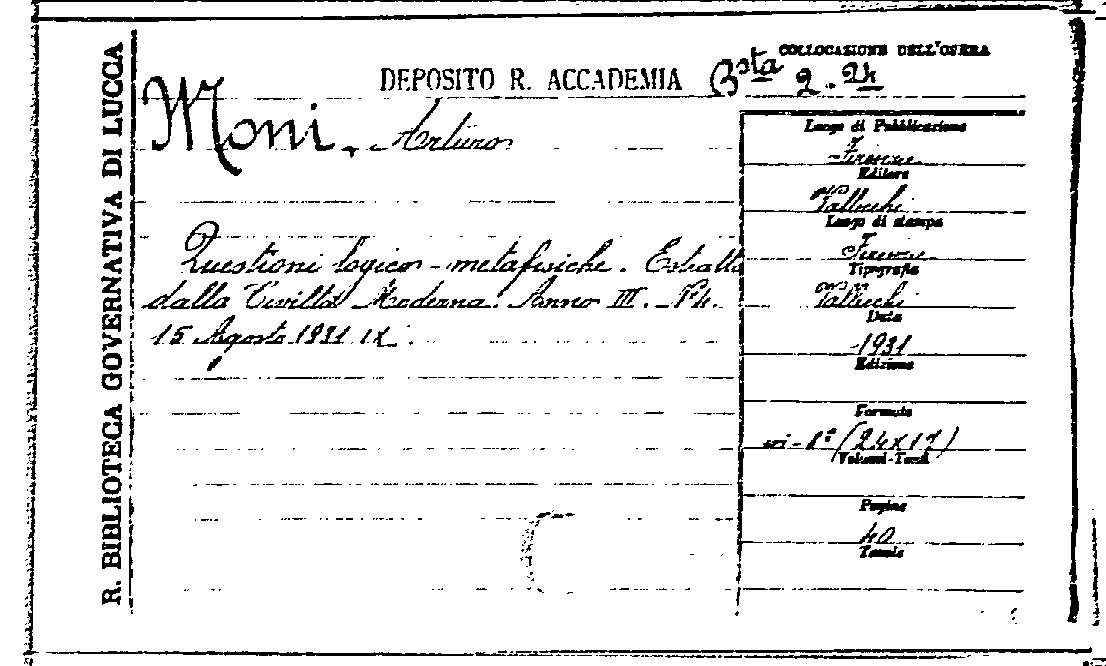 R. BIBLIOTECA GOVERNATIVA DI LUCCA
COLLOCAZIONE DELL'OPERA
DEPOSITO R. ACCADEMIA Bsta 2.24
Moni, Arturo
Questioni logico-metafisiche. Estratto
dalla Civiltà Moderna. Anno III. N 4.
15 Agosto 1931 IX.
Luogo di Pubblicazione
Firenze
Editore
Vallecchi
Luogo di stampa
Firenze
Tipografia
Vallecchi
Data
1931
Edizione
Formato
in-8° (24x17)
Volumi-Tomi
Pagine
40
Tavole